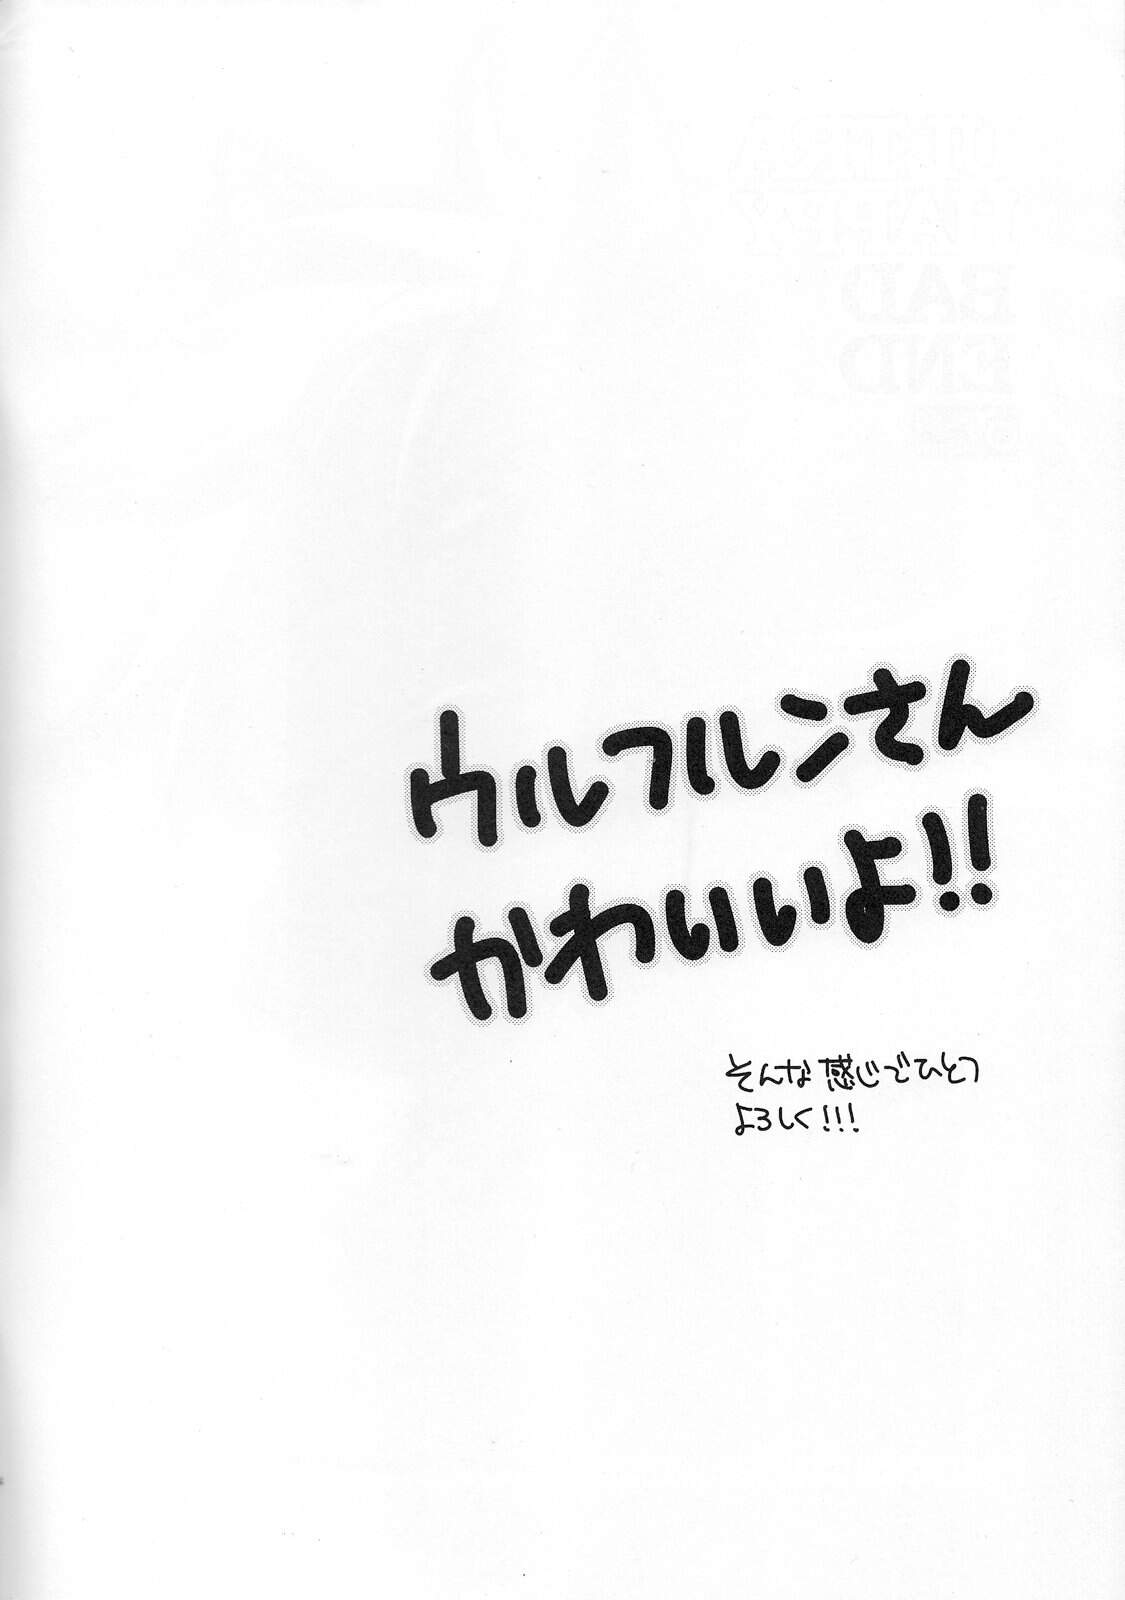 ウルフルンさん
かわいいよ!!
そんな感じでひとつ
よろしく!!!